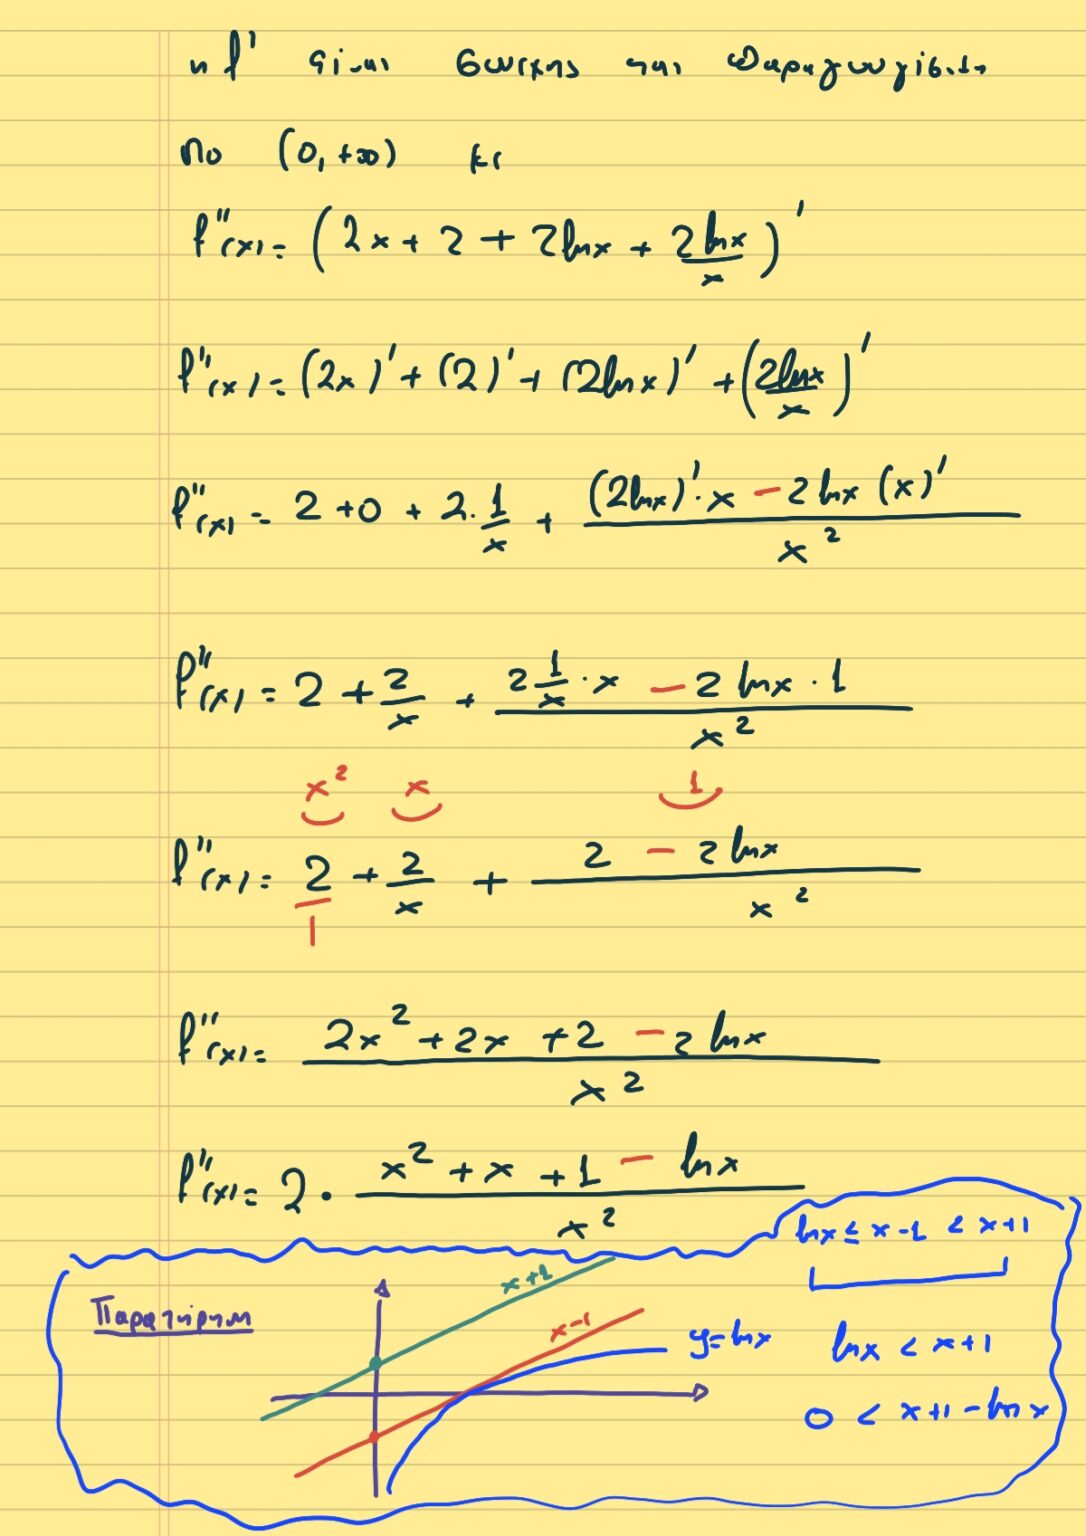 η f' είναι συνεχής και παραγωγίσιμη
στο (0, +∞) με
f''(x) = (2x + 2 + 2lnx + 2lnx/x)'
f''(x) = (2x)' + (2)' + (2lnx)' + (2lnx/x)'
f''(x) = 2 + 0 + 2·1/x + ((2lnx)'·x - 2lnx (x)')/x²
f''(x) = 2 + 2/x + (2 1/x · x - 2 lnx · 1)/x²
x² x 1
f''(x) = 2/1 + 2/x + (2 - 2 lnx)/x²
f''(x) = (2x² + 2x + 2 - 2 lnx)/x²
f''(x) = 2 · (x² + x + 1 - lnx)/x²
lnx ≤ x-1 < x+1
Παρατήρηση
x+1
x-1
y=lnx
lnx < x+1
0 < x+1 - lnx